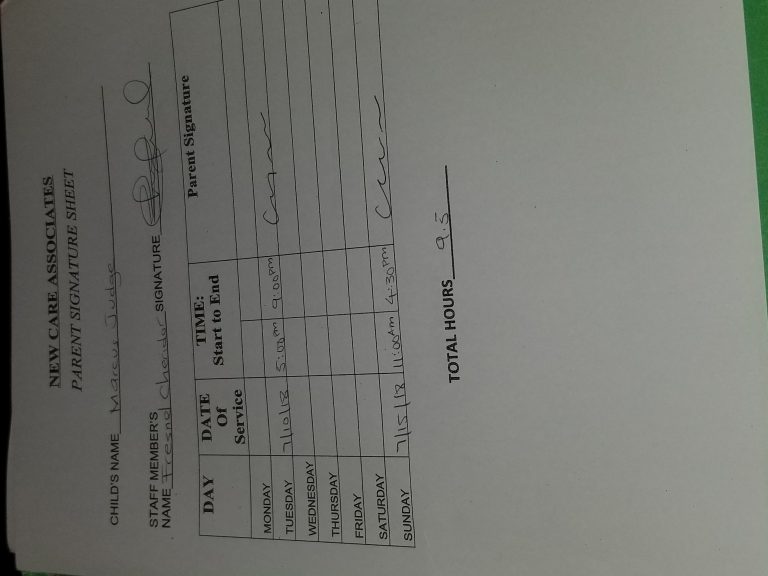 NEW CARE ASSOCIATES
PARENT SIGNATURE SHEET
CHILD'S NAME Marcus Judge
STAFF MEMBER'S
NAME Fresnol Chandor SIGNATURE
DAY DATE Of Service TIME: Start to End Parent Signature
MONDAY
TUESDAY 7/10/18 5:00pm 9:00pm
WEDNESDAY
THURSDAY
FRIDAY
SATURDAY
SUNDAY 7/15/18 11:00Am 4:30pm
TOTAL HOURS 9.5